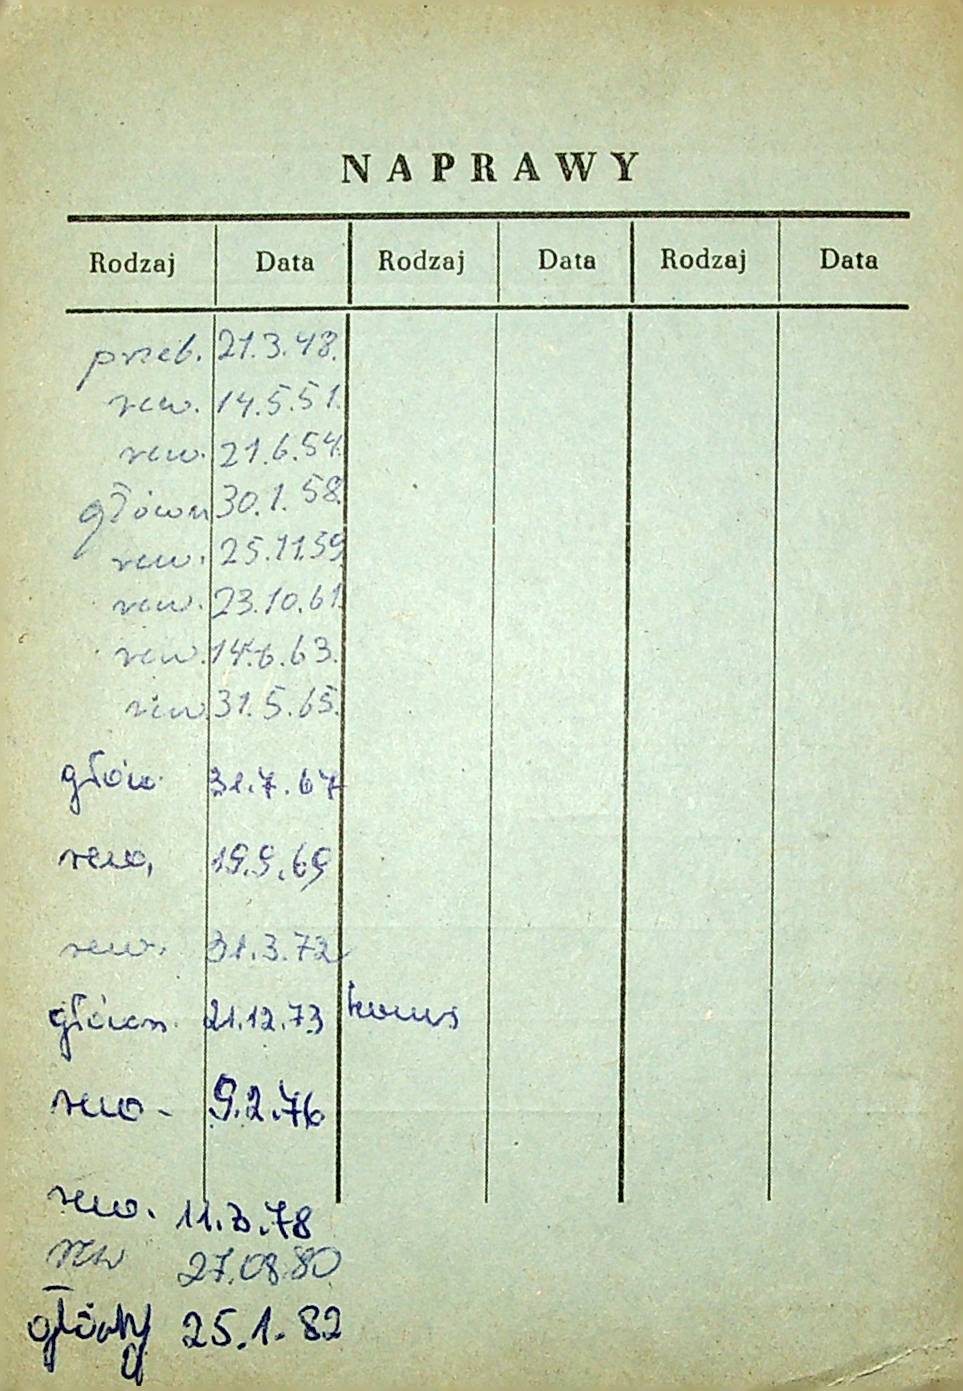 NAPRAWY
Rodzaj Data Rodzaj Data Rodzaj Data
przeb. 21.3.48.
rew. 14.5.51.
rew. 21.6.54.
główn 30.1.58.
rew. 25.11.59
rew. 23.10.61.
rew. 14.6.63.
rew 31.5.65.
głów. 31.7.67
rew. 19.9.69
rew. 31.3.72
główn. 21.12.73
rew. 9.2.76
rew. 11.3.78
rew 27.08.80
główny 25.1.82